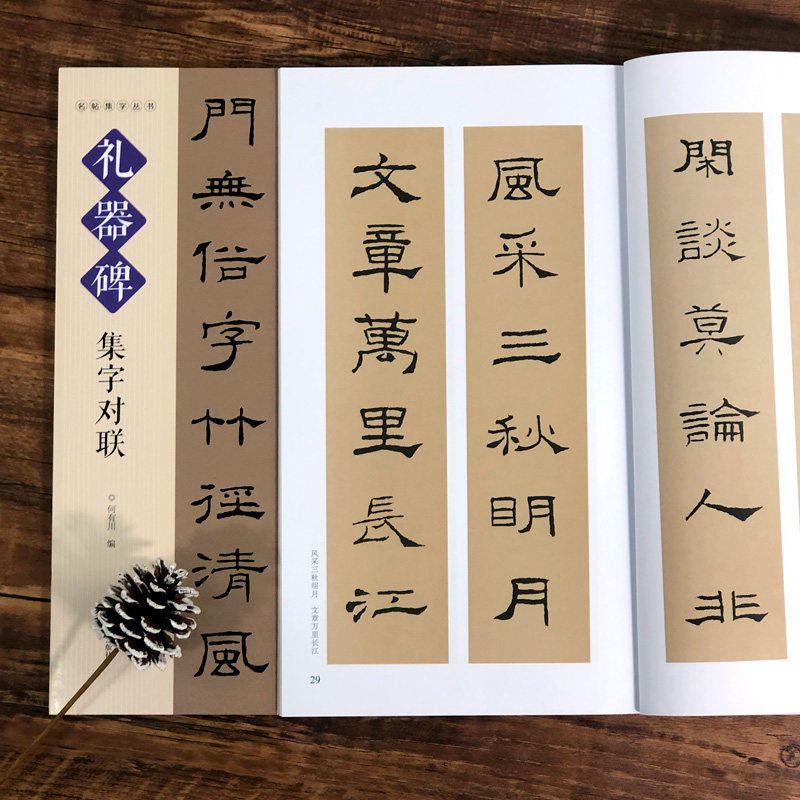 名帖集字丛书
礼器碑
集字对联
◎何有川 编
門無俗字竹徑清風
風采三秋明月
文章萬里長江
风采三秋明月 文章万里长江
29
閑談莫論人非